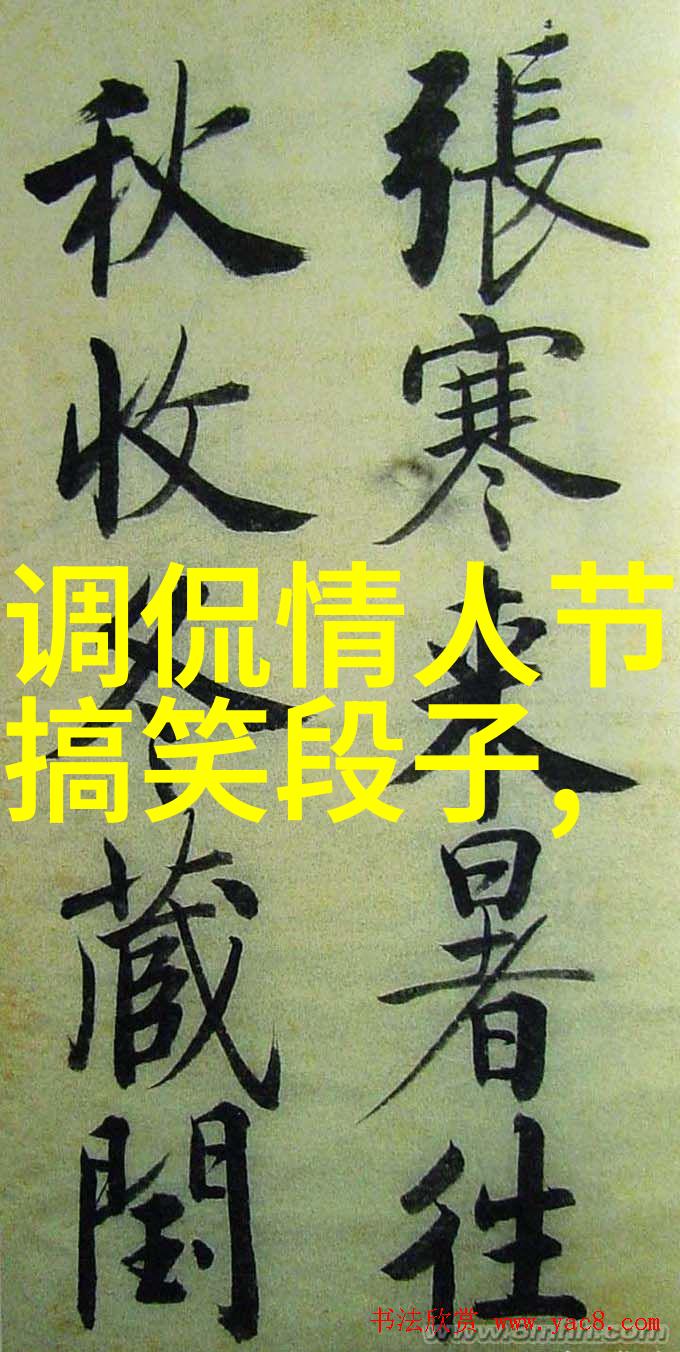 張寒来暑往
秋收冬蔵閏
调侃情人节
搞笑段子,
书法欣赏 www.yac8.com